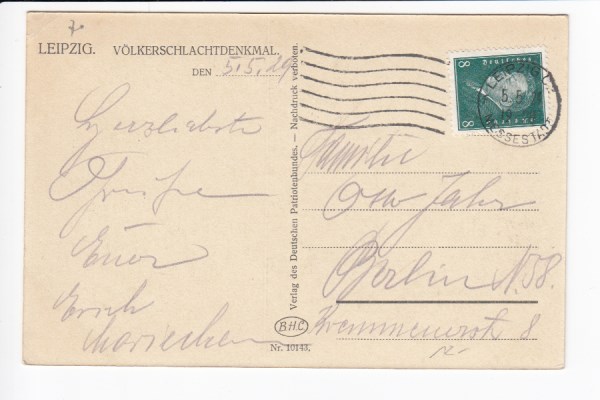 LEIPZIG. VÖLKERSCHLACHTDENKMAL.
DEN 5.5.29
Herzliebste
Grüße
Euer
Erich
Mariechen
Verlag des Deutschen Patriotenbundes. — Nachdruck verboten.
BHC
Nr. 10143.
8 Deutsches 8
LEIPZIG
5.5
MESSESTADT
Familie
Berlin N58.
Kremmenerstr 8